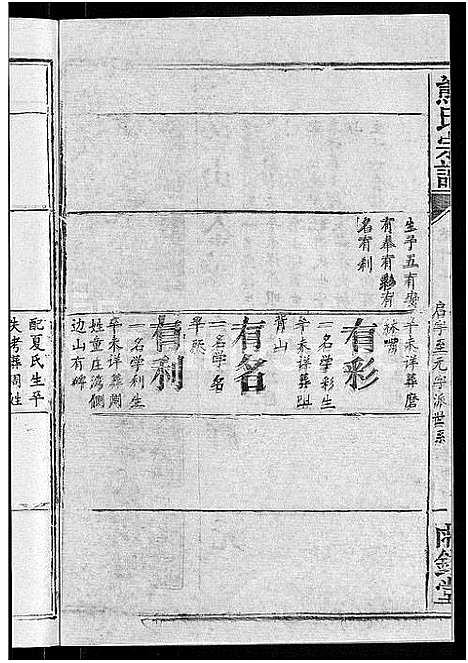 熊氏宗譜
启字至元字派世系
生子五有安
有奉有彩有
名有利
卒未详葬磨
林嘴
有彩
一名学彩生
卒未详葬
背山
有名
一名学名
早殀
有利
一名学利生
卒未详葬周
姓童庄湾侧
边山有碑
配夏氏生平
失考葬周姓